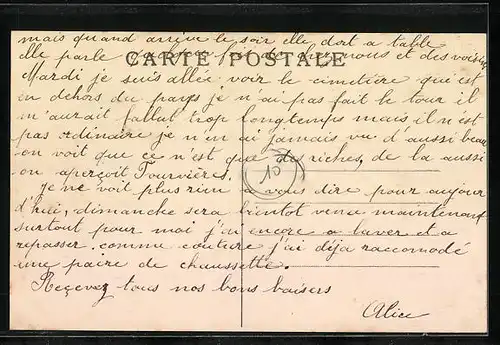 mais quand arrive le soir elle dort a table
elle parle de chez nous et des voisins
CARTE POSTALE
Mardi je suis allée voir le cimetière qui est
en dehors du pays je n'ai pas fait le tour il
m'aurait fallut trop longtemps mais il n'est
pas ordinaire je n'en ai jamais vu d'aussi beau
on voit que ce n'est que de riches, de la aussi
on aperçoit Fourvières.
10
Je ne voit plus rien a vous dire pour aujour
d'hui, dimanche sera bientot venu maintenant
surtout pour moi j'ai encore a laver et a
repasser. comme couture j'ai déja raccomodé
une paire de chaussette.
Recevez tous nos bons baisers
Alice